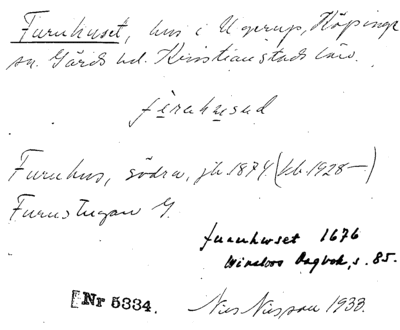 Furuhuset, hus i Ugerup, Köpinge
sn. Gärds hd. Kristianstads län.
Furuhus, södra, jb 1874 (kb 1928—)
Furustugan G.
furuhuset 1676
dagbok, s. 85.
Nr 5334.
Nils Nilsson 1938.